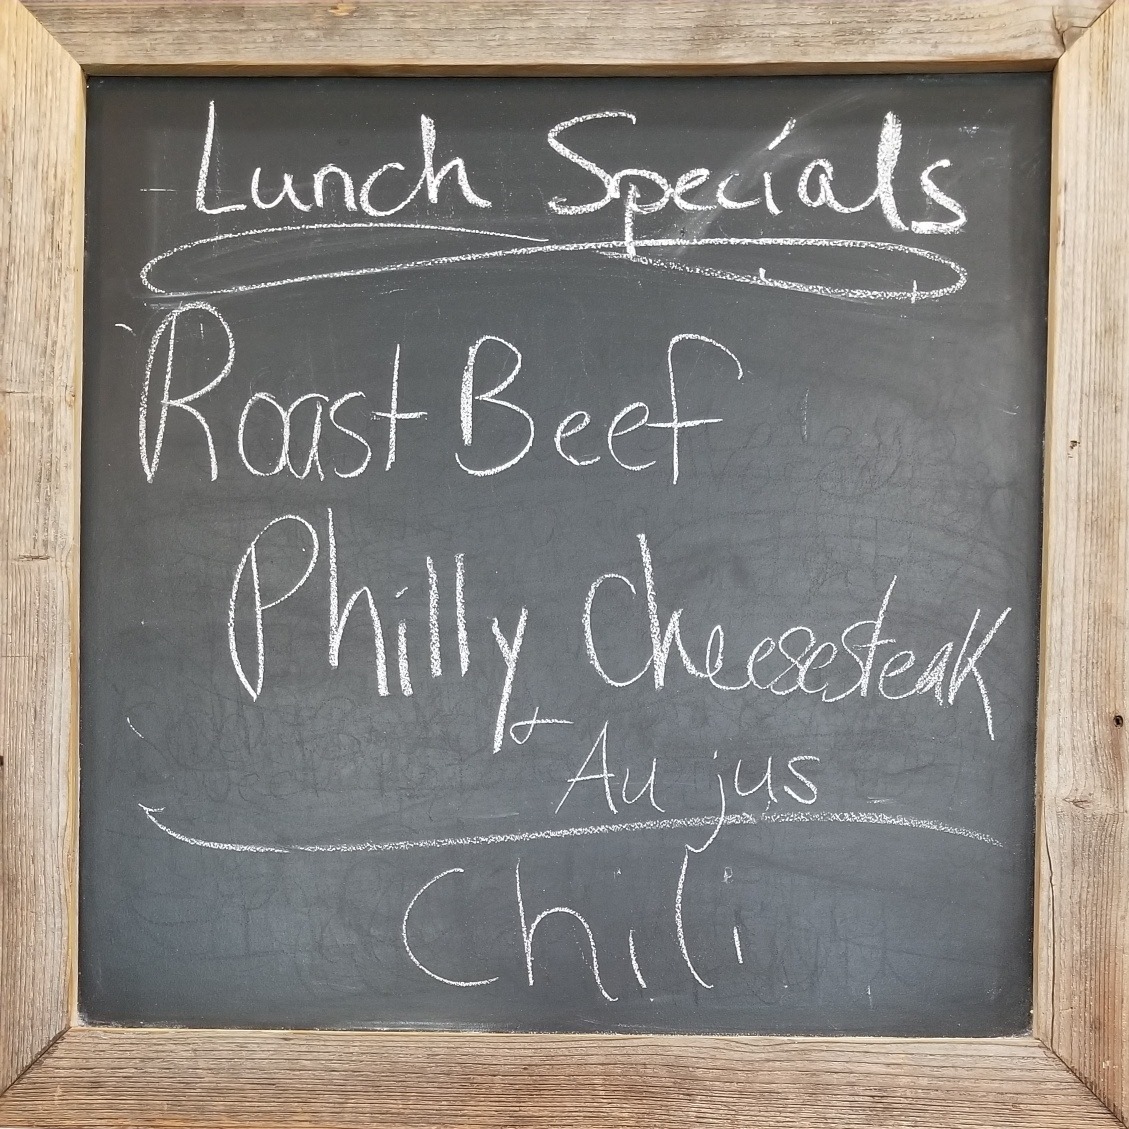 Lunch Specials
Roast Beef
Philly Cheesesteak
& Au jus
Chili